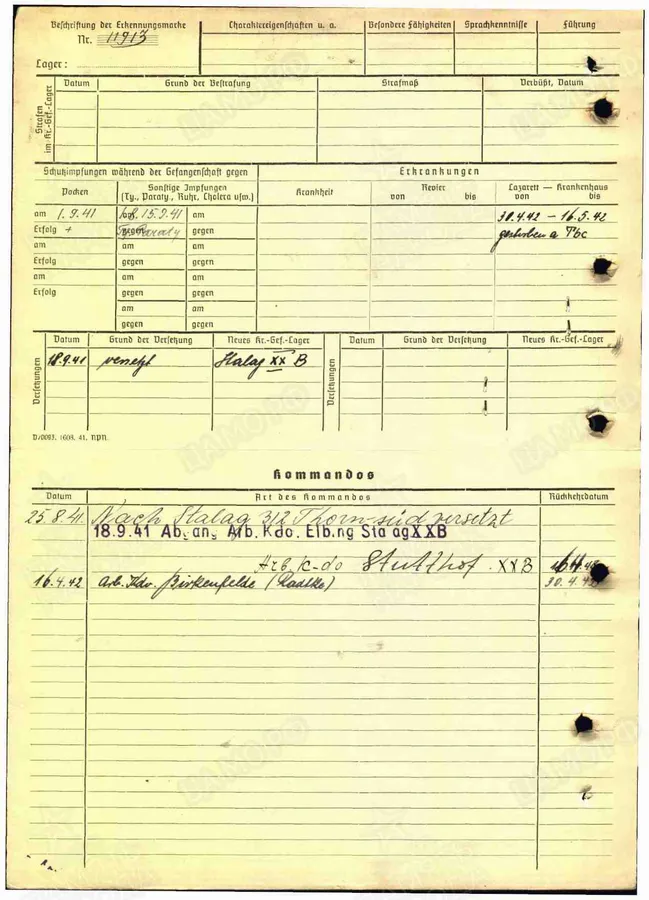 Beschriftung der Erkennungsmarke
Nr. 11913
Lager:
Charaktereigenschaften u. a.
Besondere Fähigkeiten
Sprachkenntnisse
Führung
Strafen im Kr.-Gef.-Lager
Datum Grund der Bestrafung Strafmaß Verbüßt, Datum
Schutzimpfungen während der Gefangenschaft gegen
Erkrankungen
Pocken
Sonstige Impfungen
(Ty., Paraty., Ruhr, Cholera usw.)
Krankheit
Revier
von bis
Lazarett — Krankenhaus
von bis
am 1.9.41 15.9.41 am 30.4.42 – 16.5.42
Erfolg + gegen Paraty gegen gestorben a Tbc
am am am
Erfolg gegen gegen
am am am
Erfolg gegen gegen
am am
gegen gegen
Versetzungen
Datum Grund der Versetzung Neues Kr.-Gef.-Lager
18.9.41 versetzt Stalag XX B
Versetzungen
Datum Grund der Versetzung Neues Kr.-Gef.-Lager
Kommandos
Datum Art des Kommandos Rückkehrdatum
25.8.41. Nach Stalag 312 Thorn-süd versetzt
18.9.41 Abgang Arb. Kdo. Elbing Stalag XXB
Arb. K-do Stutthof. XXB
16.4.42 Arb. Kdo. Birkenfelde (Radtke) 30.4.